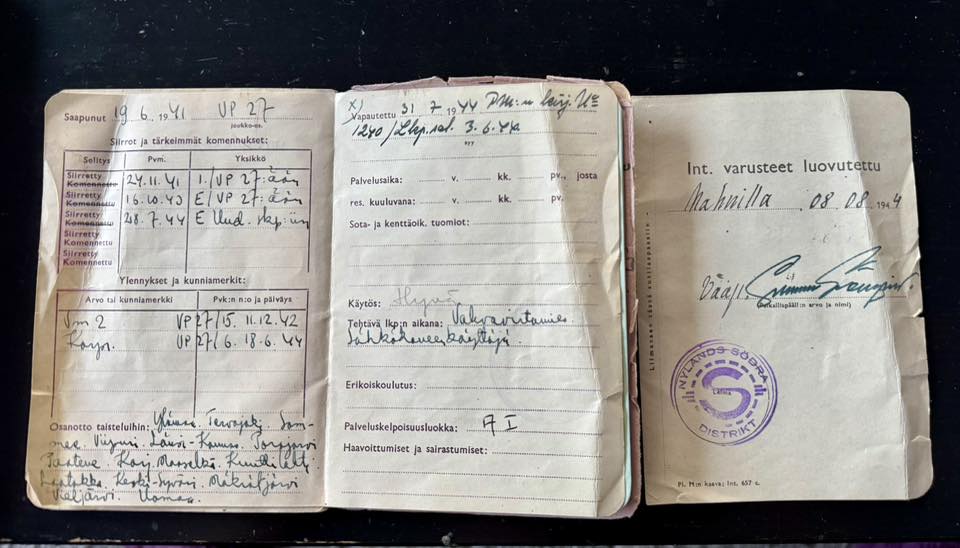 Saapunut 19.6.1941 VP 27
joukko-os.
Siirrot ja tärkeimmät komennukset:
Selitys Pvm. Yksikkö
Siirretty
Komennettu 24.11.41 I./VP 27:ään
Siirretty
Komennettu 16.10.43 E/VP 27:ään
Siirretty
Komennettu 28.7.44 E Uud. skp:iin
Siirretty
Komennettu
Siirretty
Komennettu
Ylennykset ja kunniamerkit:
Arvo tai kunniamerkki Pvk:n n:o ja päiväys
Vm 2 VP 27/15. 11.12.42
Korpr. VP 27/6. 18.6.44
Osanotto taisteluihin:
Viipuri.
Karj. Maaselkä.
Laatokka. Keski-Syväri.
Vieljärvi. Uomaa.
x)
Vapautettu 31 7 1944 PM:n kirj. N:o
1240/Lkp.sal. 3.6.44
syy
Palvelusaika: v. kk. pv., josta
res. kuuluvana: v. kk. pv.
Sota- ja kenttäoik. tuomiot:
Käytös: Hyvä
Tehtävä lkp:n aikana: Vahvavirtamies
Sähkökoneenkäyttäjä.
Erikoiskoulutus:
Palveluskelpoisuusluokka: A I
Haavoittumiset ja sairastumiset:
Int. varusteet luovutettu
08 08 1944
Vääp.
arvo ja nimi)
Liimataan tässä sotilaspassiin
NYLANDS SÖDRA
S
DISTRIKT
Pl. M:n kaava: Int. 657 c.